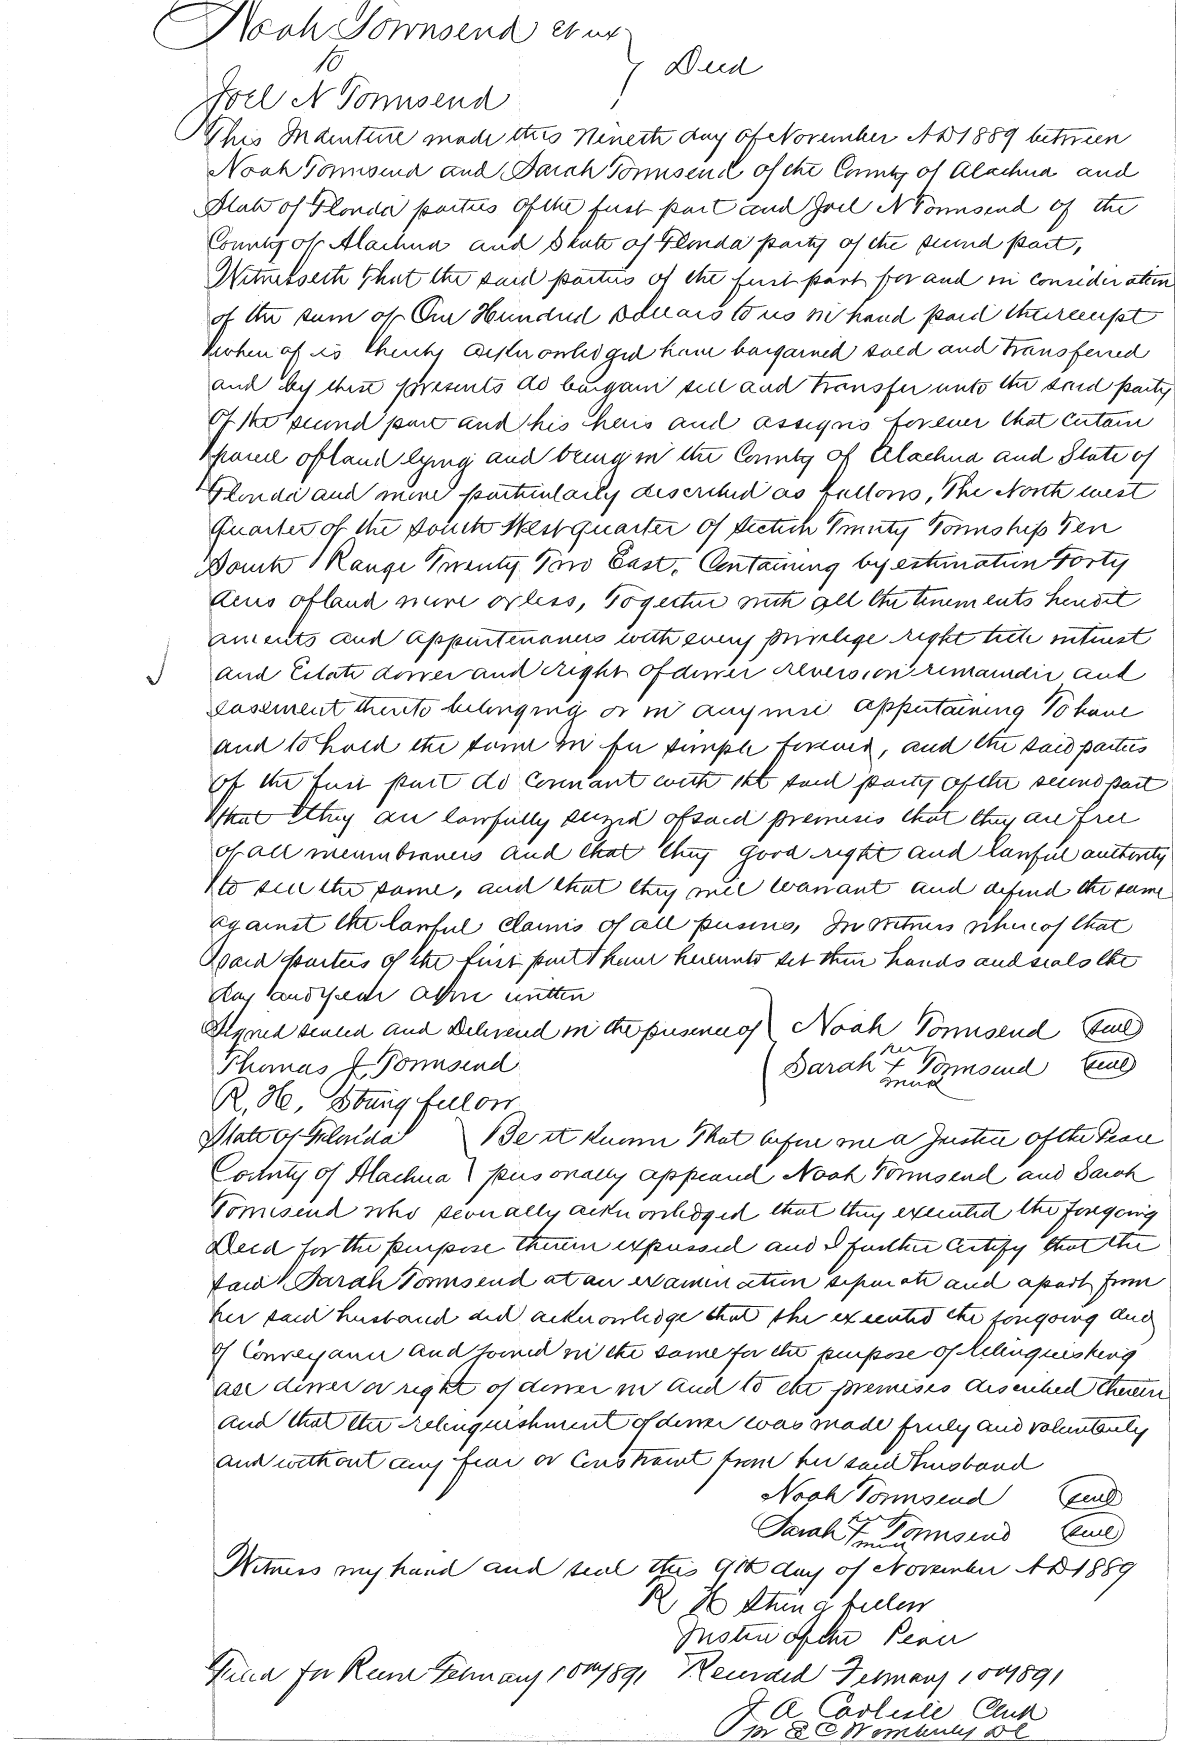 Noah Townsend et ux
to } Deed
Joel N Townsend
This Indenture made this Nineth day of November AD 1889 between
Noah Townsend and Sarah Townsend of the County of Alachua and
State of Florida parties of the first part and Joel N Townsend of the
County of Alachua and State of Florida party of the second part,
Witnesseth that the said parties of the first part for and in consideration
of the sum of One Hundred Dollars to us in hand paid the receipt
whereof is hereby acknowledged have bargained sold and transferred
and by these presents do bargain sell and transfer unto the said party
of the second part and his heirs and assigns forever that certain
parcel of land lying and being in the County of Alachua and State of
Florida and more particularly described as follows, The North west
quarter of the South West quarter of Section Twenty Township Ten
South Range Twenty Two East, Containing by estimation Forty
acres of land more or less, Together with all the tenements heredit
aments and appurtenances with every privilege right title interest
and Estate dower and right of dower reversion remainder and
easement thereto belonging or in anywise appertaining To have
and to hold the same in fee simple forever, and the said parties
of the first part do covenant with the said party of the second part
that they are lawfully seized of said premises that they are free
of all incumbrances and that they good right and lawful authority
to sell the same, and that they will warrant and defend the same
against the lawful claims of all persons, In witness whereof that
said parties of the first part have hereunto set their hands and seals the
day and year above written
Signed sealed and Delivered in the presence of } Noah Townsend (seal)
Thomas J. Townsend Sarah her x mark Townsend (seal)
R. H. Stringfellow
State of Florida } Be it known That before me a Justice of the Peace
County of Alachua } personally appeared Noah Townsend and Sarah
Townsend who severally acknowledged that they executed the foregoing
Deed for the purpose therein expressed and I further certify that the
said Sarah Townsend at an examination separate and apart from
her said husband did acknowledge that she executed the foregoing deed
of Conveyance and joined in the same for the purpose of relinquishing
all dower or right of dower in and to the premises described therein
and that the relinquishment of dower was made freely and voluntarily
and without any fear or Constraint from her said husband
Noah Townsend (seal)
Sarah her x mark Townsend (seal)
Witness my hand and seal this 9th day of November AD 1889
R H Stringfellow
Justice of the Peace
Filed for Record February 10th 1891 Recorded February 10th 1891
J A Carlisle Clerk
pr E C Wimberley DC